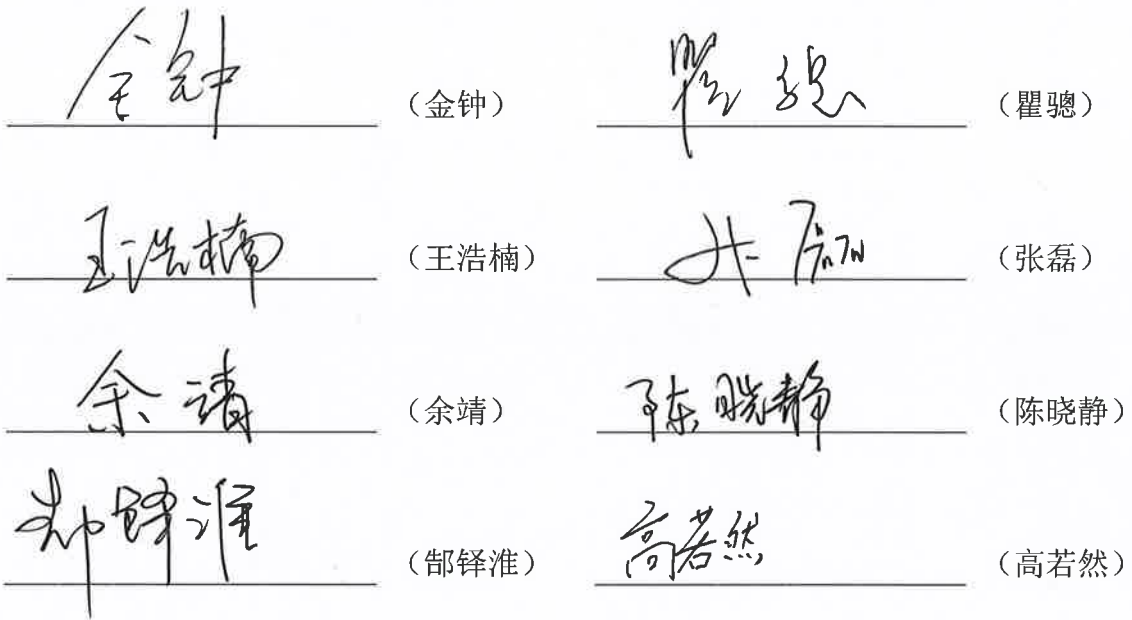 金钟 （金钟） 瞿骢 （瞿骢）
王浩楠 （王浩楠） 张磊 （张磊）
余靖 （余靖） 陈晓静 （陈晓静）
郜铎淮 （郜铎淮） 高若然 （高若然）